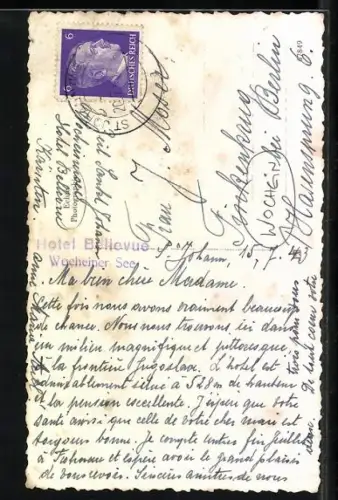 6
DEUTSCHES REICH
Frau J. Moser
Finkenkrug
WOCHEIN bei Berlin
Hotel Bellevue
Kärnten.
Hotel Bellevue
Wocheiner See
St. Johann, 15.7.43
Ma bien chère Madame.
Cette fois nous avons vraiment beaucoup
de chance. Nous nous trouvons ici dans
un milieu magnifique et pittoresque
à la frontière Jugoslave. L'hôtel est
admirablement situé à 548 m de hauteur
et la pension excellente. J'espère que votre
santé ainsi que celle de votre cher mari est
toujours bonne. Je compte entrer fin juillet
à et espère avoir le grand plaisir
de vous revoir. Sincères amitiés de nous
trois pour vous
De tout cœur votre
Anne Marie